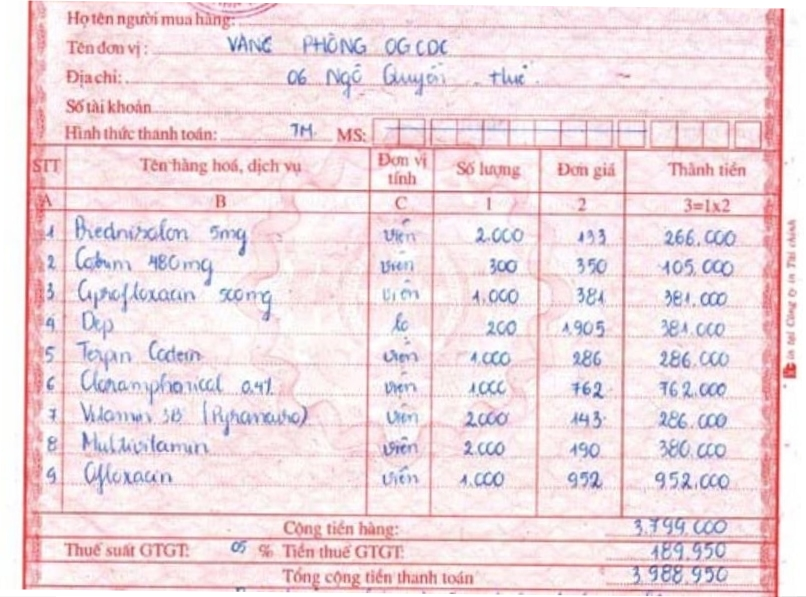 Họ tên người mua hàng:
Tên đơn vị: VĂNG PHÒNG OGCDC
Địa chỉ: 06 Ngô Quyền Huế
Số tài khoản
Hình thức thanh toán: TM MS:
STT Tên hàng hoá, dịch vụ Đơn vị tính Số lượng Đơn giá Thành tiền
A B C 1 2 3=1x2
1 Brednisolon 5mg viên 2.000 133 266.000
2 Cotrim 480mg viên 300 350 105.000
3 Ciprofloxacin 500mg viên 1.000 381 381.000
4 Dep lọ 200 1.905 381.000
5 Terpin Codein viên 1.000 286 286.000
6 Cloramphenical 0.4% viên 1000 762 762.000
7 Vitamin 3B viên 2000 143 286.000
8 Multivitamin viên 2.000 190 380.000
9 Ofloxacin viên 1.000 952 952.000
Cộng tiền hàng: 3.799.000
Thuế suất GTGT: 05 % Tiền thuế GTGT: 189.950
Tổng cộng tiền thanh toán 3.988.950
in tại Công ty in Tài chính